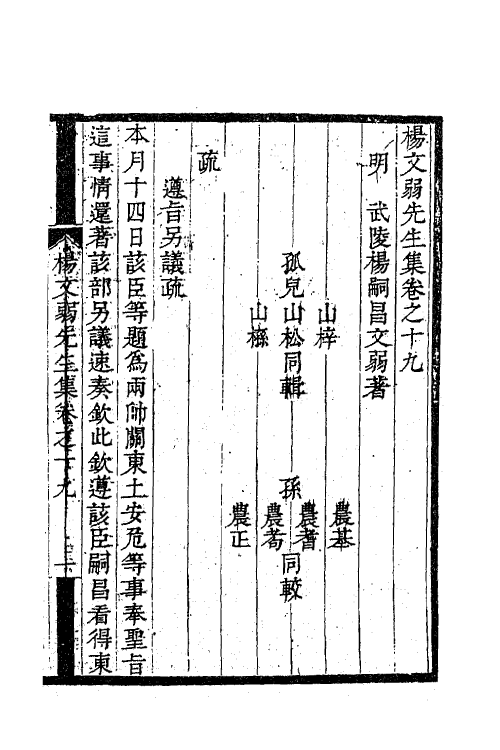 楊文弱先生集卷之十九
明　武陵楊嗣昌文弱著
山梓
孤兒山松同輯
山𣗳
農基
農耆
孫　同較
農苟
農正
疏
遵旨另議疏
本月十四日該臣等題爲兩帥關東土安危等事奉聖旨
這事情還著該部另議速奏欽此欽遵該臣嗣昌看得東
楊文弱先生集卷之十九